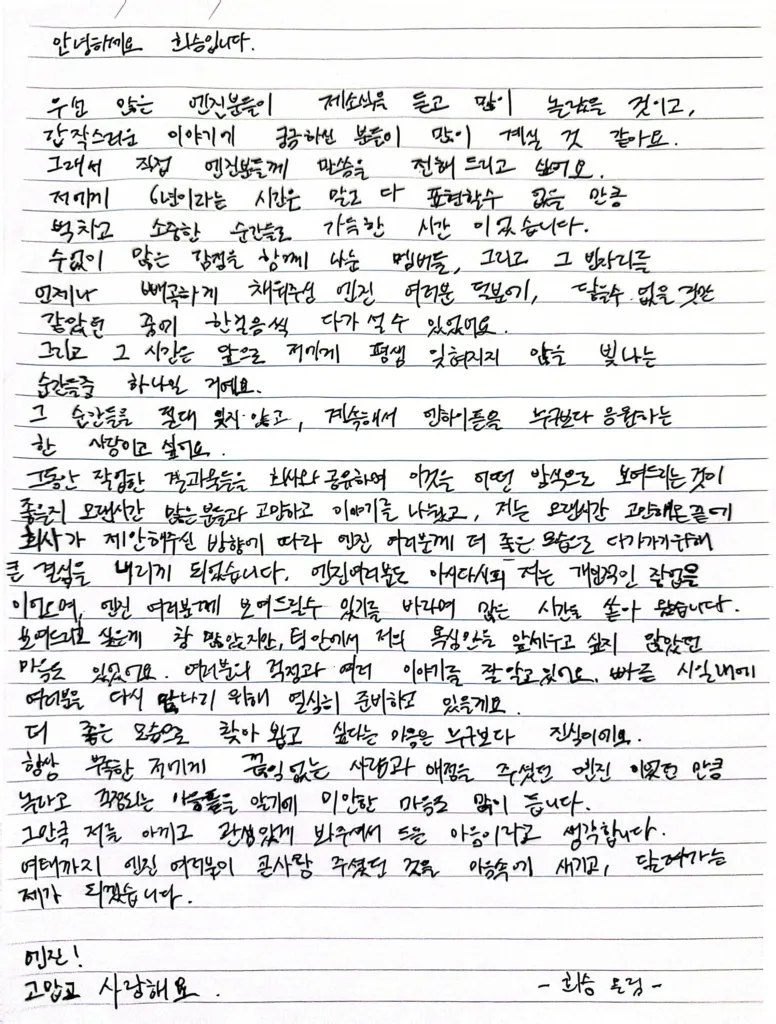 안녕하세요 희승입니다.
우선 많은 엔진분들이 제소식을 듣고 많이 놀랐을 것이고,
갑작스러운 이야기에 궁금하신 분들이 많이 계실 것 같아요.
그래서 직접 엔진분들께 말씀을 전해 드리고 싶어요.
저에게 6년이라는 시간은 말로 다 표현할수 없을 만큼
벅차고 소중한 순간들로 가득한 시간 이었습니다.
수없이 많은 감정을 함께 나눈 멤버들, 그리고 그 빈자리를
언제나 빼곡하게 채워주신 엔진 여러분 덕분에, 닿을수 없을 것만
같았던 꿈에 한걸음씩 다가 설 수 있었어요.
그리고 그 시간은 앞으로 저에게 평생 잊혀지지 않을 빛나는
순간들중 하나일 거에요.
그 순간들을 절대 잊지 않고, 계속해서 엔하이픈을 누구보다 응원하는
한 사람이고 싶어요.
그동안 작업한 결과물들을 회사와 공유하며 이것을 어떤 방식으로 보여드리는것이
좋을지 오랜시간 많은분들과 고민하고 이야기를 나눴고, 저는 오랜시간 고민해온끝에
회사가 제안해주신 방향에 따라 엔진 여러분께 더 좋은 모습으로 다가가기위해
큰 결심을 내리게 되었습니다. 엔진여러분도 아시다시피 저는 개인적인 작업을
이어오며, 엔진 여러분께 보여드릴수 있기를 바라며 많은 시간을 쏟아 왔습니다.
보여드리고 싶은게 참 많았지만, 팀 안에서 저의 욕심만을 앞세우고 싶지 않았던
마음도 있었어요. 여러분의 걱정과 여러 이야기를 잘 알고 있어요. 빠른 시일내에
여러분을 다시 만나기 위해 열심히 준비하고 있을게요.
더 좋은 모습으로 찾아 뵙고 싶다는 마음은 누구보다 진심이에요.
항상 부족한 저에게 끊임없는 사랑과 애정을 주셨던 엔진 이었던 만큼
놀라고 걱정되는 마음들을 알기에 미안한 마음도 많이 듭니다.
그만큼 저를 아끼고 관심있게 봐주셔서 드는 마음이라고 생각합니다.
여태까지 엔진 여러분이 큰사랑 주셨던 것을 마음속에 새기고, 달려가는
제가 되겠습니다.
엔진!
고맙고 사랑해요.
- 희승 드림 -